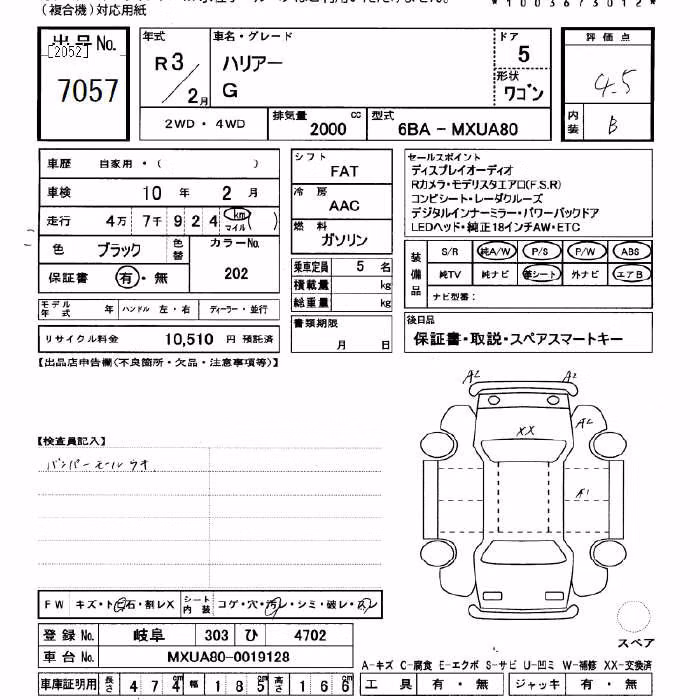 (複合機)対応用紙
*1003673012*
出品No.
[2052]
7057
年式
R3/2月
車名・グレード
ハリアー
G
ドア
5
形状
ワゴン
評価点
4.5
内装
B
2WD・4WD
排気量
2000 cc
型式
6BA-MXUA80
車歴 自家用・( )
車検 10年 2月
走行 4万7千924 km マイル
色 ブラック 色替
カラーNo.
202
保証書 有・無
モデル年式 年 ハンドル 左・右 ディーラー・並行
リサイクル料金 10,510円 預託済
シフト
FAT
冷房
AAC
燃料
ガソリン
乗車定員 5名
積載量 kg
総重量 kg
書類期限
月 日
セールスポイント
ディスプレイオーディオ
Rカメラ・モデリスタエアロ(F,S,R)
コンビシート・レーダクルーズ
デジタルインナーミラー・パワーバックドア
LEDヘッド・純正18インチAW・ETC
装備品
S/R 純A/W P/S P/W ABS
純TV 純ナビ 革シート 外ナビ エアB
ナビ型番:
後日品
保証書・取説・スペアスマートキー
【出品店申告欄(不良箇所・欠品・注意事項等)】
A2 A2
A2
XX
A1
【検査員記入】
バンパーモールウオ
FW キズ・ト石・割レX シート内装 コゲ・穴・汚レ・シミ・破レ・
登録No. 岐阜 303 ひ 4702
車台No. MXUA80-0019128
車庫証明用 長さ 474 幅 185cm 高さ 166cm
スペア
A-キズ C-腐食 E-エクボ S-サビ U-凹ミ W-補修 XX-交換済
工具 有・無 ジャッキ 有・無